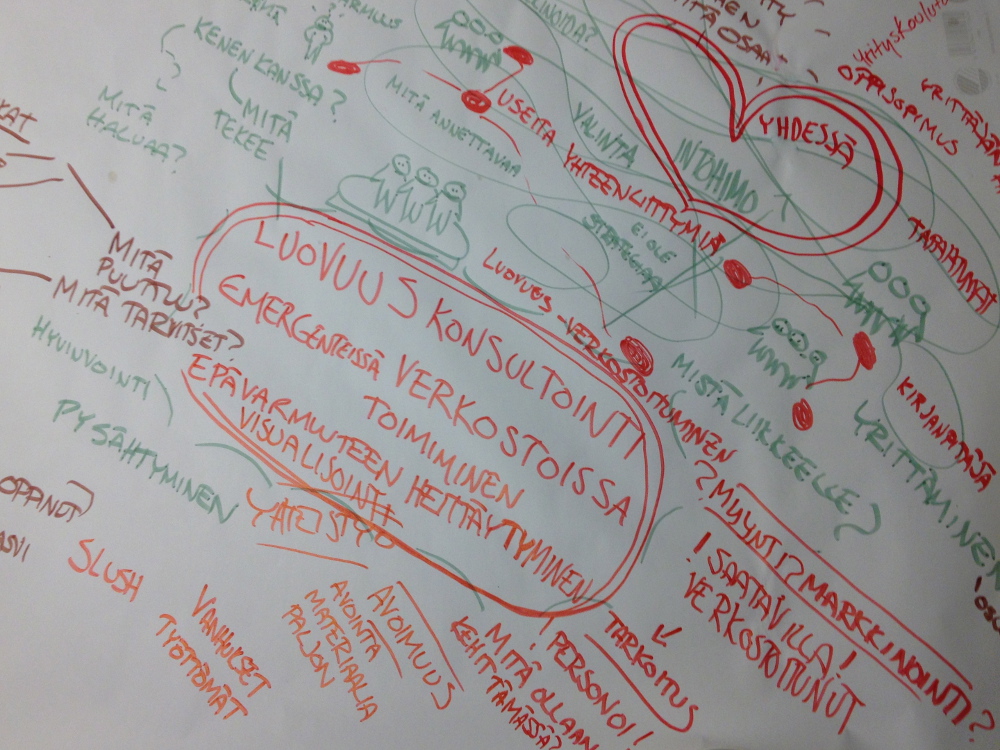 KENEN KANSSA?
MITÄ
HALUAA?
MITÄ
TEKEE
MITÄ ANNETTAVAA
USEITA YHTEENLIITTYMIÄ
VALINTA
INTOHIMO
YHDESSÄ
EI OLE
STRATEGIAA
OPPISOPIMUS
TAPAHTUMAT
MITÄ
PUUTTUU?
MITÄ TARVITSET?
LUOVUUS KONSULTOINTI
EMERGENTEISSÄ VERKOSTOISSA
TOIMIMINEN
EPÄVARMUUTEEN HEITTÄYTYMINEN
VISUALISOINTI
LUOVUUS - VERKOSTOITUMINEN
MISTÄ LIIKKEELLE?
KIRJANPITÄJÄ
YRITTÄMINEN
HYVINVOINTI
PYSÄHTYMINEN
YHTEISTYÖ
SLUSH
VANHUKSET
TYÖTTÖMÄT
AVOIMUUS
AVOINTA
MATERIAALIA
PALJON
MITÄ OLLAAN
KEHITTÄMÄSSÄ?
! PERSONOI!
TARKOITUS
? MYYNTI? MARKKINOINTI?
! SAATAVILLA!
VERKOSTOITUNUT